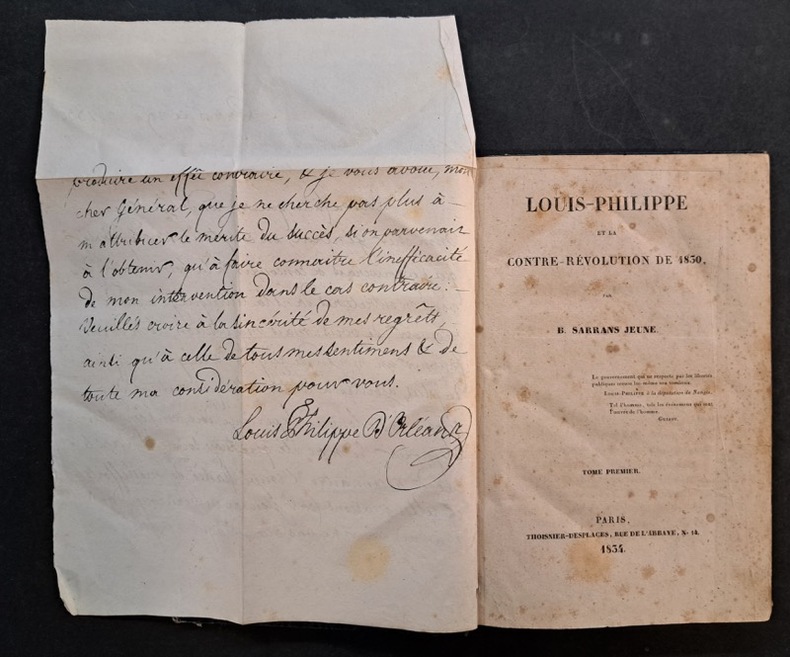 produire un effet contraire, & je vous avoue, mon
cher Général, que je ne cherche pas plus à
m'attribuer le mérite du succès, si on parvenait
à l'obtenir, qu'à faire connaître l'inefficacité
de mon intervention dans le cas contraire.
Veuillés croire à la sincérité de mes regrêts,
ainsi qu'à celle de tous mes sentimens & de
toute ma considération pour vous.
Louis Philippe D'Orléans
LOUIS-PHILIPPE
ET LA
CONTRE-RÉVOLUTION DE 1830,
PAR
B. SARRANS JEUNE.
Le gouvernement qui ne respecte pas les libertés
publiques
LOUIS-PHILIPPE à la députation de
Tel l'homme, tels les événemens qui sont
l'œuvre de l'homme.
TOME PREMIER.
PARIS,
THOISSIER-DESPLACES, RUE DE L'ABBAYE, N. 14.
1834.